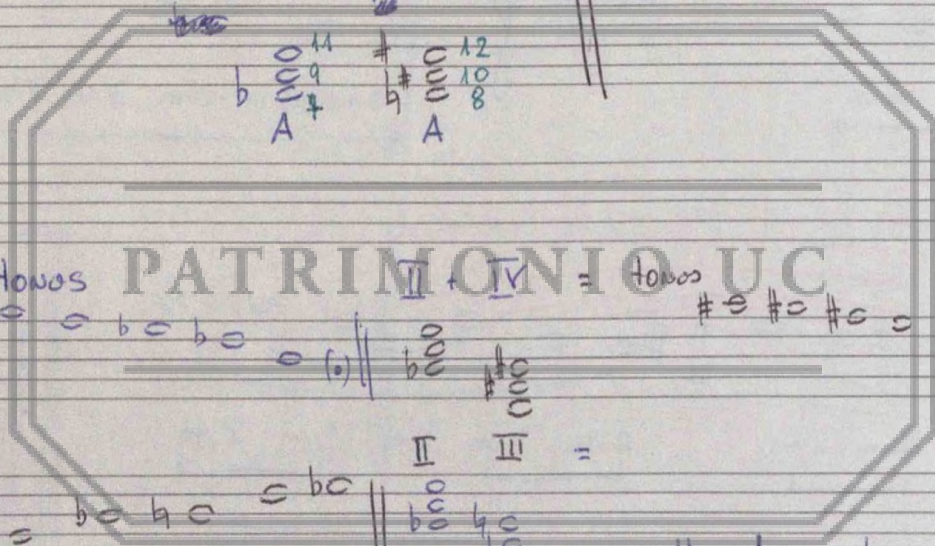 11 12
9 10
7 8
A A
PATRIMONIO UC
tonos II + IV = tonos
II III =